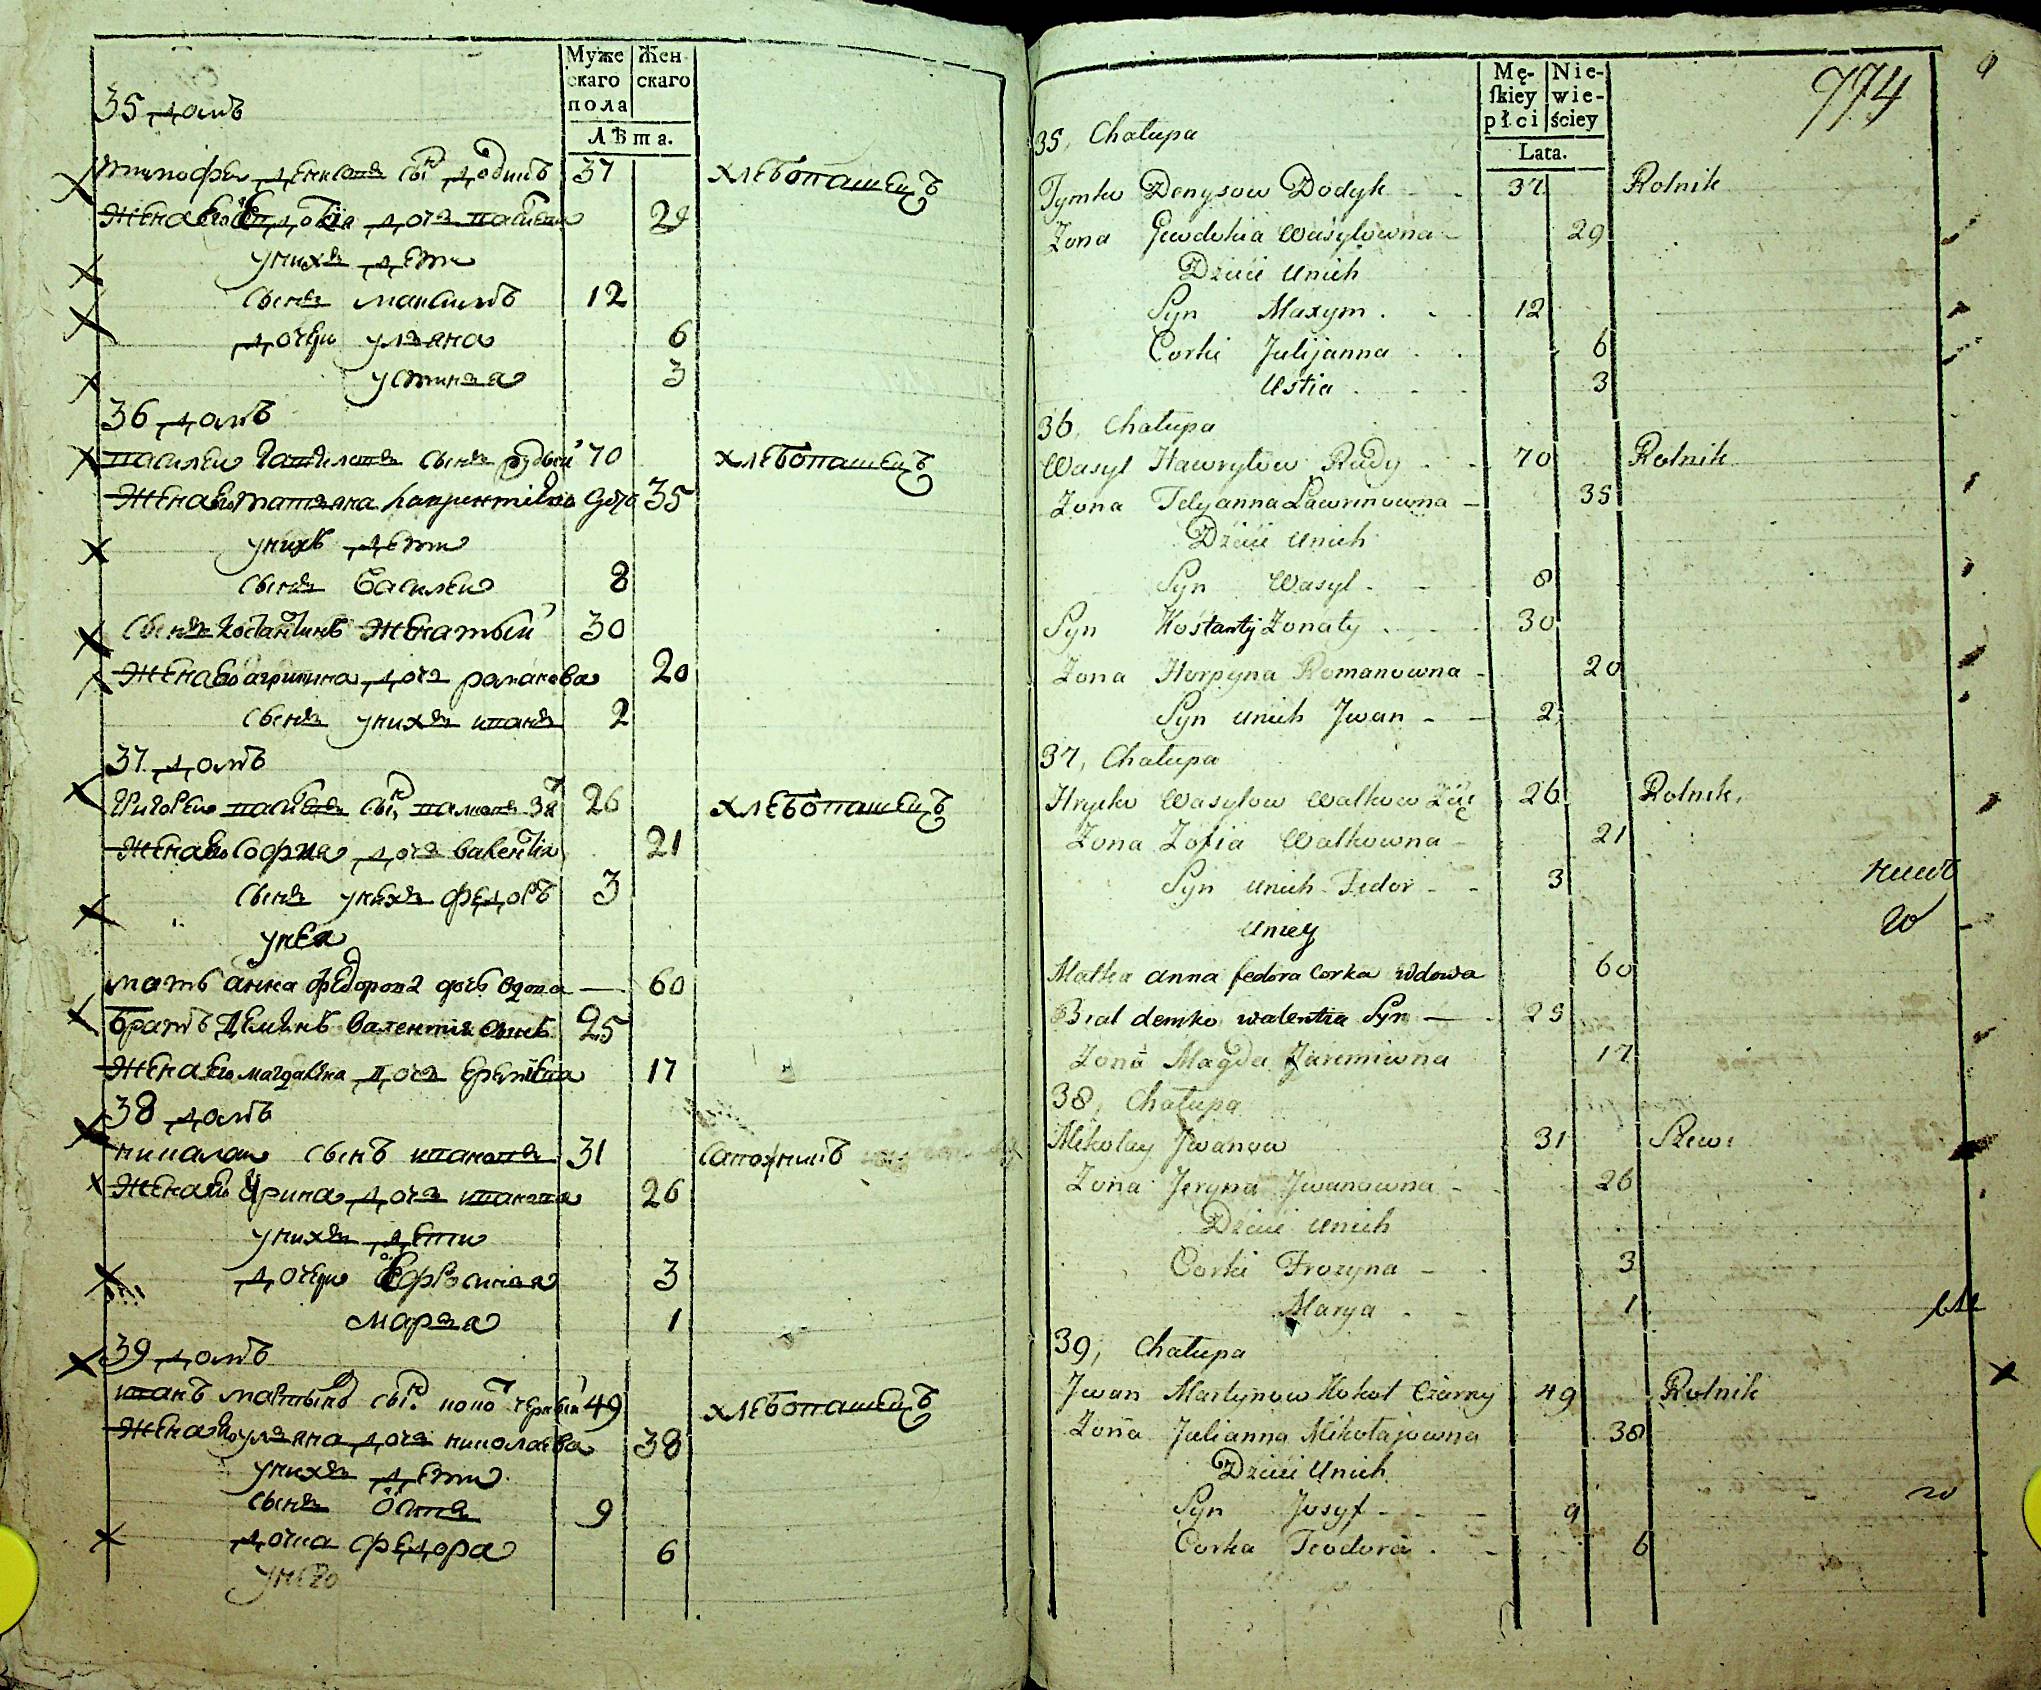 Муже
скаго
пола
Жен
скаго
Лѣта.
35 домъ
тимофеи денисовъ сынъ додикъ 37 хлебопашецъ
Жена его Евдокия дочь васильева 29
у нихъ дети
сынъ максимъ 12
дочери ульяна 6
устинья 3
36 домъ
василеи гаврилов сынъ рудыи 70 хлебопашецъ
Жена его татьяна лаврентиева 35
у нихъ дети
сынъ василеи 8
сынъ костантинъ женатыи 30
Жена его агрипина дочь романова 20
сынъ у нихъ иванъ 2
37 домъ
григореи васильевъ сынъ 26 хлебопашецъ
Жена его София дочь валентия 21
сынъ у нихъ федоръ 3
у нея
мать анна федорова дочь вдова — 60
братъ демянъ валентия сынъ 25
Жена его магдалина дочь еремиева 17
38 домъ
николаи сынъ ивановъ 31 сапожникъ
Жена его Ирина дочь иванова 26
у нихъ дети
дочери Ефросинья 3
марья 1
39 домъ
иванъ мартынов сын кокот черныи 49 хлебопашецъ
Жена его ульяна дочь николаева 38
у нихъ дети
сынъ осипъ 9
дочка федора 6
у него
Mę-
skiey
płci
Nie-
wie-
ściey
Lata.
774
35, Chałupa
Tymko Denysow Dodyk 37 Rolnik
Zona Jewdokia Wasylowna 29
Dzieci u nich
Syn Maxym 12
Corki Julijanna 6
Ustia 3
36, Chałupa
Wasyl Hawryłow Rudy 70 Rolnik
Zona Tetyanna Ławrinowna 35
Dzieci u nich
Syn Wasyl 8
Syn Kostanty Zonaty 30
Zona Horpyna Romanowna 20
Syn u nich Jwan 2
37, Chałupa
Hryćko Wasylow Walkow Zięć 26 Rolnik
Zona Zofia Walkowna 21
Syn u nich Fedor 3
u niey
Matka anna fedora Corka wdowa 60
Brat demko walentia Syn — 25
Zona Magda Jaremiwna 17
38, Chałupa
Mikołay Jwanow 31 Szewc
Zona Jeryna Jwanowna 26
Dzieci u nich
Corki Frozyna 3
Marya 1
39, Chałupa
Jwan Martynow Kokot Czarny 49 Rolnik
Zona Julianna Mikołajowna 38
Dzieci u nich
Syn Josyf 9
Corka Teodora 6